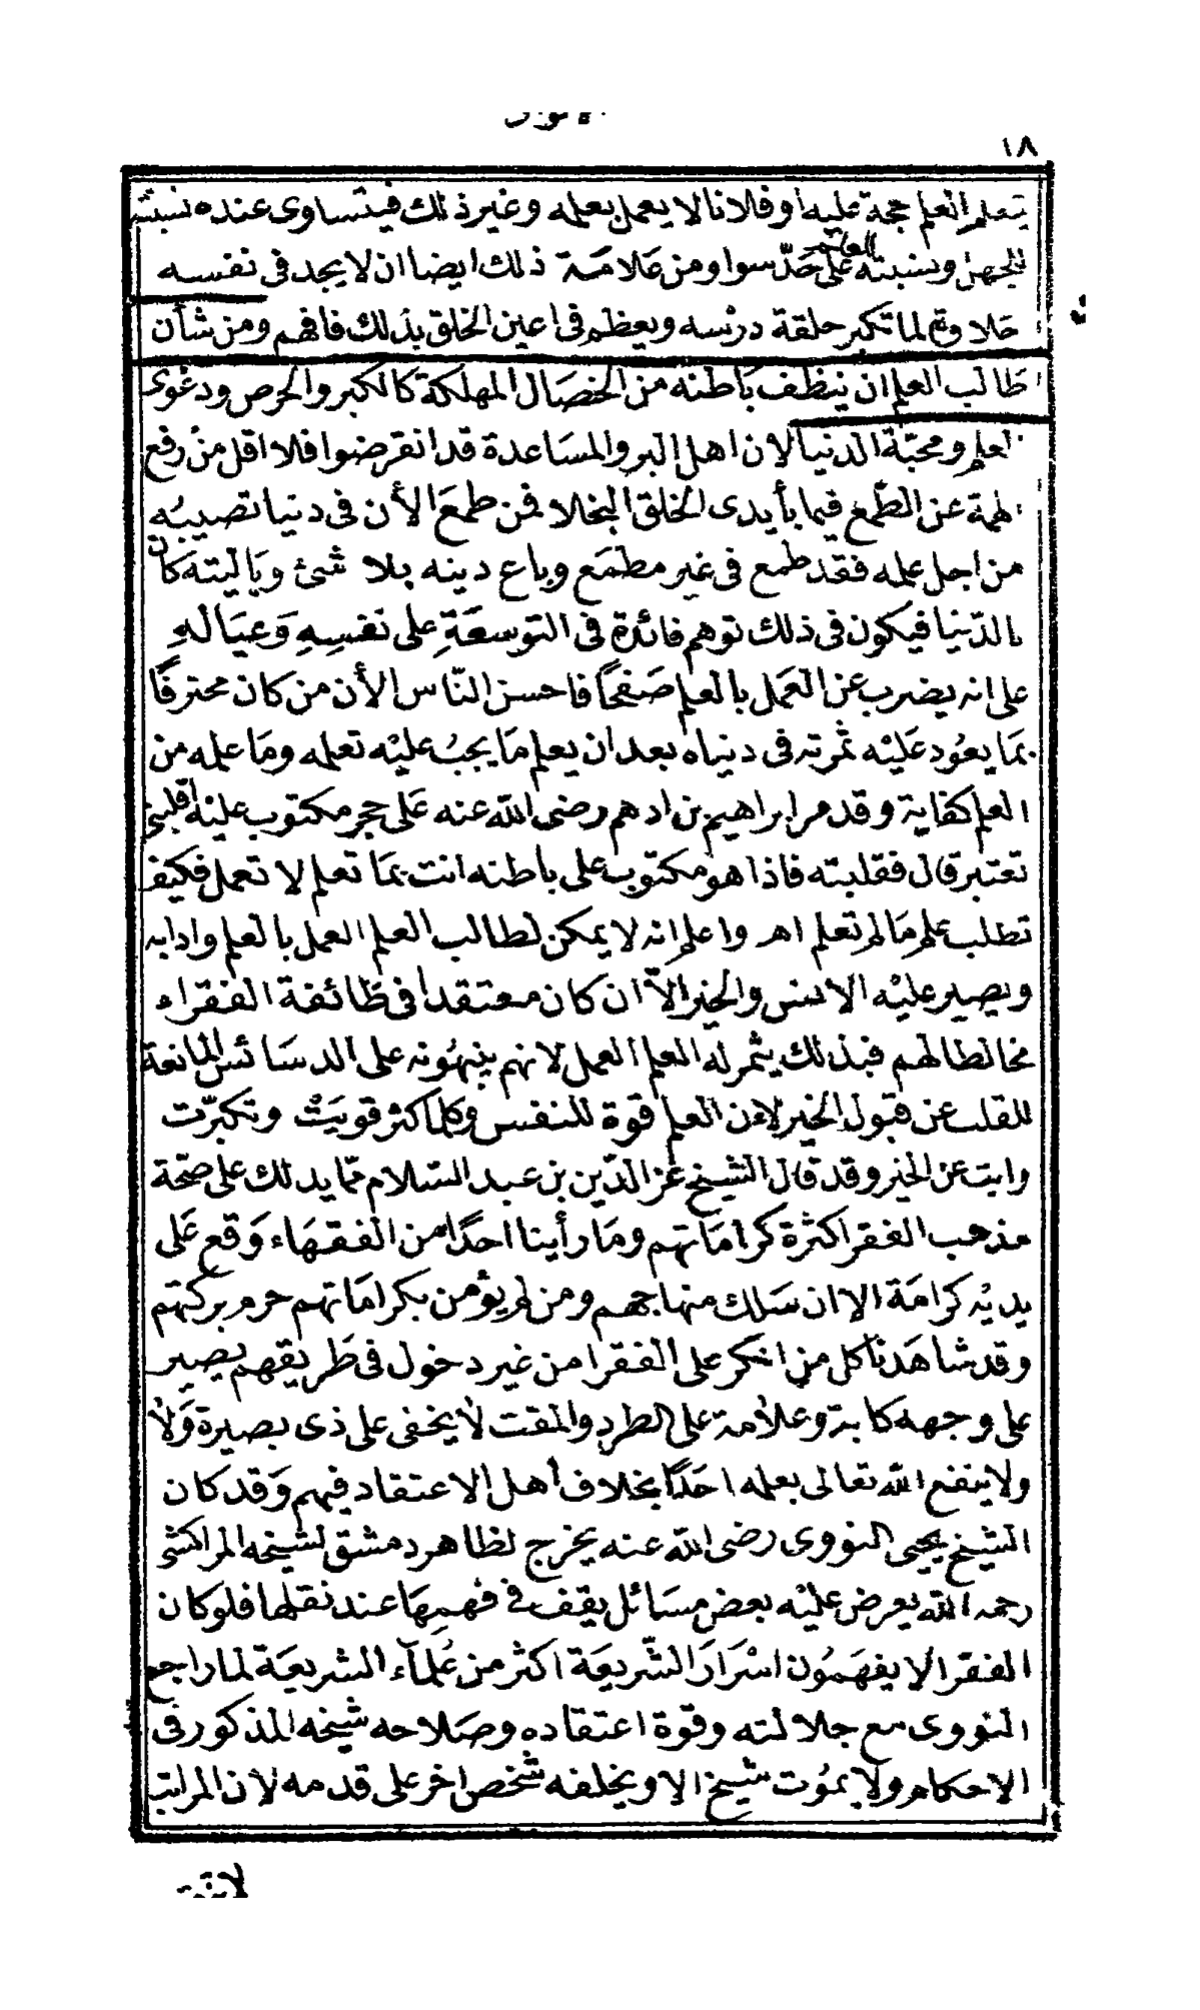 ١٨
يتعلم العلم حجة عليه او فلانا لا يعمل بعلمه وغير ذلك فيتساوى عنده نسبته
للجهل ونسبته للعالم على حدّ سوا ومن علامة ذلك ايضا ان لا يجد فى نفسه
خلاوة لما تكبر حلقة درسه ويعظم فى اعين الخلق بذلك فافهم ومن شأن
طالب العلم ان ينظف باطنه من الخصال المهلكة كالكبر والحرص ودعوى
العلم ومحبّة الدنيا لان اهل البر والمساعدة قد انقرضوا فلا اقل من رفع
الهمة عن الطّمع فيما بأيدى الخلق البخلا فمن طمعَ الأن فى دنيا تصيبُه
من اجل علمه فقد طمع فى غير مطمَع وباع دينه بلا شئ ويَا ليته كان
بالدّنيا فيكون فى ذلك توهم فائدة فى التوسعَةِ على نفسِهِ وَعيَالهِ
على انه يضرب عن العَمل بالعلم صَفحًا فاحسن النّاس الأن من كان محترفًا
بمَا يعُود عَليْه ثمرته فى دنياه بعد ان يعلم مَا يجبُ عليْه تعلمه ومَا علمه من
العلم كفاية وقد مر ابراهيم بن ادهم رضى الله عنه عَلى حجر مكتوب عليْه اقلبنى
تعتبر قال فقلبته فاذا هو مكتوب على باطنه انت بمَا تعلم لا تعمل فكيف
تطلب علم مَا لم تعلم اهـ واعلم انه لا يمكن لطالب العلم العمل بالعلم وادابه
ويصير عليْه الانس والخير الّا ان كان معتقدا فى طَائفة الفقراء
مخالطا لهم فبذلك يثمر له العلم العمل لانهم ينبهُونه على الدسَائس المانعة
للقلب عن قبول الخير لان العلم قوة للنفس وكلما كثر قويَتْ وتكبرّت
وابت عن الخير وقد قال الشيخ عز الدّين بن عبد السّلام ممّا يدلك على صحّة
مذهب الفقرا كثرة كرامَاتهم ومَا رأينا احدًا من الفقهَاء وَقع عَلى
يديْه كرامَة الا ان سَلك منهاجهم ومن لم يؤمن بكرامَاتهم حرم بركتهم
وقد شاهَدنا كل من انكر على الفقرا من غير دخول فى طَريقهم يصير
على وجهه كابة وعلامة على الطرد والمقت لا يخفى على ذى بصيرة وَلا
ولا ينفع الله تعالى بعلمه احَدًا بخلاف أهل الاعتقاد فيهم وَقد كان
الشيخ يحيى النووى رضى الله عنه يخرج لظاهر دمشق لشيخه المراكشى
رحمه الله يعرض عليْه بعض مسَائل يقف فى فهمِهَا عند نقلها فلو كان
الفقرا لا يفهَمُون اسْرَارَ الشّريعَة اكثر من عُلمآء الشريعَة لما راجع
النووى مع جلالته وقوة اعتقاده وصَلاحه شيخه المذكور فى
الاحكام ولا يمُوت شيخ الا ويخلفه شخص اخر على قدمه لان المراتب